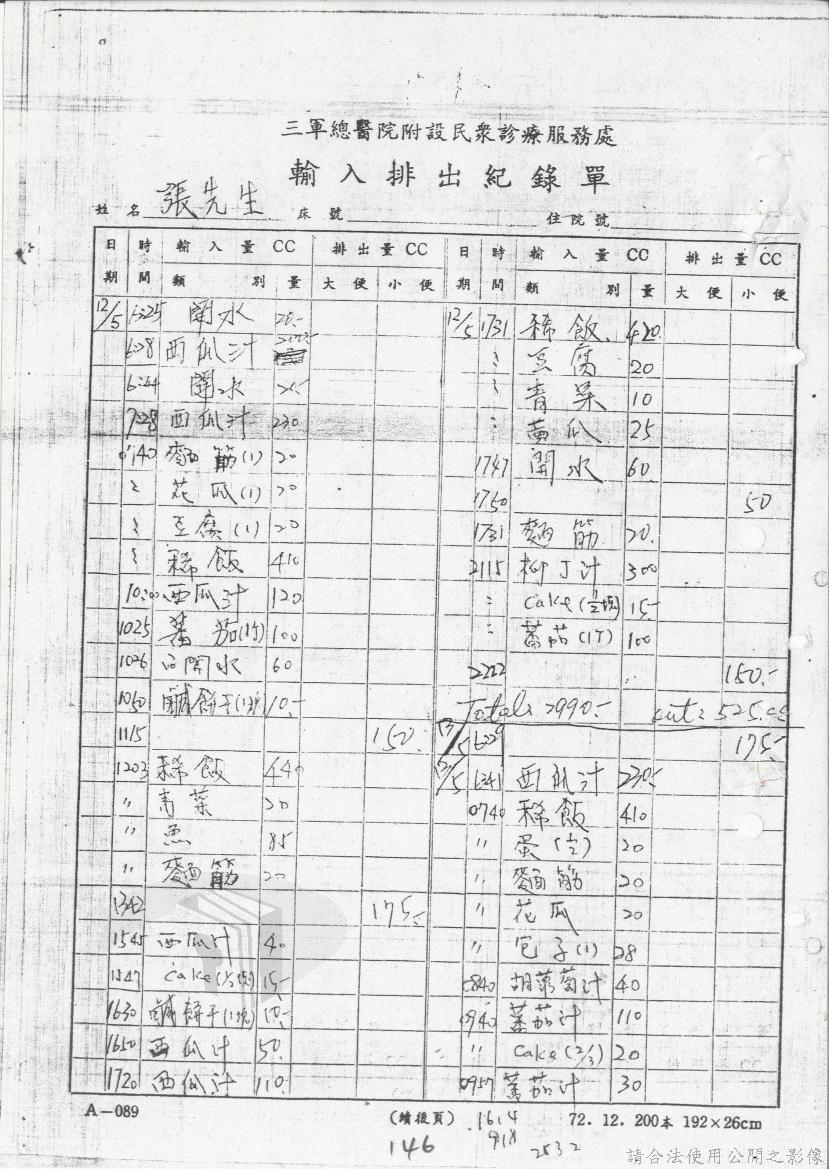 三軍總醫院附設民衆診療服務處
輸入排出紀錄單
姓名 張先生 床號 住院號
日期 時間 輸入量 CC 類別 量 排出量 CC 大便 小便
12/5 6:25 開水 20.-
6:28 西瓜汁
開水
7:28 西瓜汁 230
0740 麵筋(1) 20
〃 花瓜(1) 20
〃 豆腐(1) 20
〃 稀飯 410
10:00 西瓜汁 120
1025 蕃茄(1个) 100
1026 白開水 60
1050 鹹餅干(1塊) 10.-
1115 150.
1203 稀飯 440
〃 青菜 20
〃 魚 85
〃 麵筋 20
1342 175.-
1545 西瓜汁 40
1547 cake(1/3塊) 15.
1630 鹹餅干(1塊) 10.-
1650 西瓜汁 50.
1720 西瓜汁 110.
日期 時間 輸入量 CC 類別 量 排出量 CC 大便 小便
12/5 1731 稀飯. 420.
〃 豆腐 20
〃 青菜 10
〃 黃瓜 25
1747 開水 60.
1750 50
1731 麵筋 20.
2115 柳丁汁 300
〃 cake(1/2塊) 15.-
〃 蕃茄(1个) 100
2222 150.-
Total: 2990.- out: 525.cc
175.-
6241 西瓜汁 230.-
0740 稀飯 410
〃 蛋(1/2) 20
〃 麵筋 20
〃 花瓜 20
〃 包子(1) 28
0840 胡蘿蔔汁 40
0940 蕃茄汁 110
〃 cake(2/3) 20
0957 蕃茄汁 30
A－089
(續後頁)
72. 12. 200本 192×26cm
1614
918
2532
146
請合法使用公開之影像